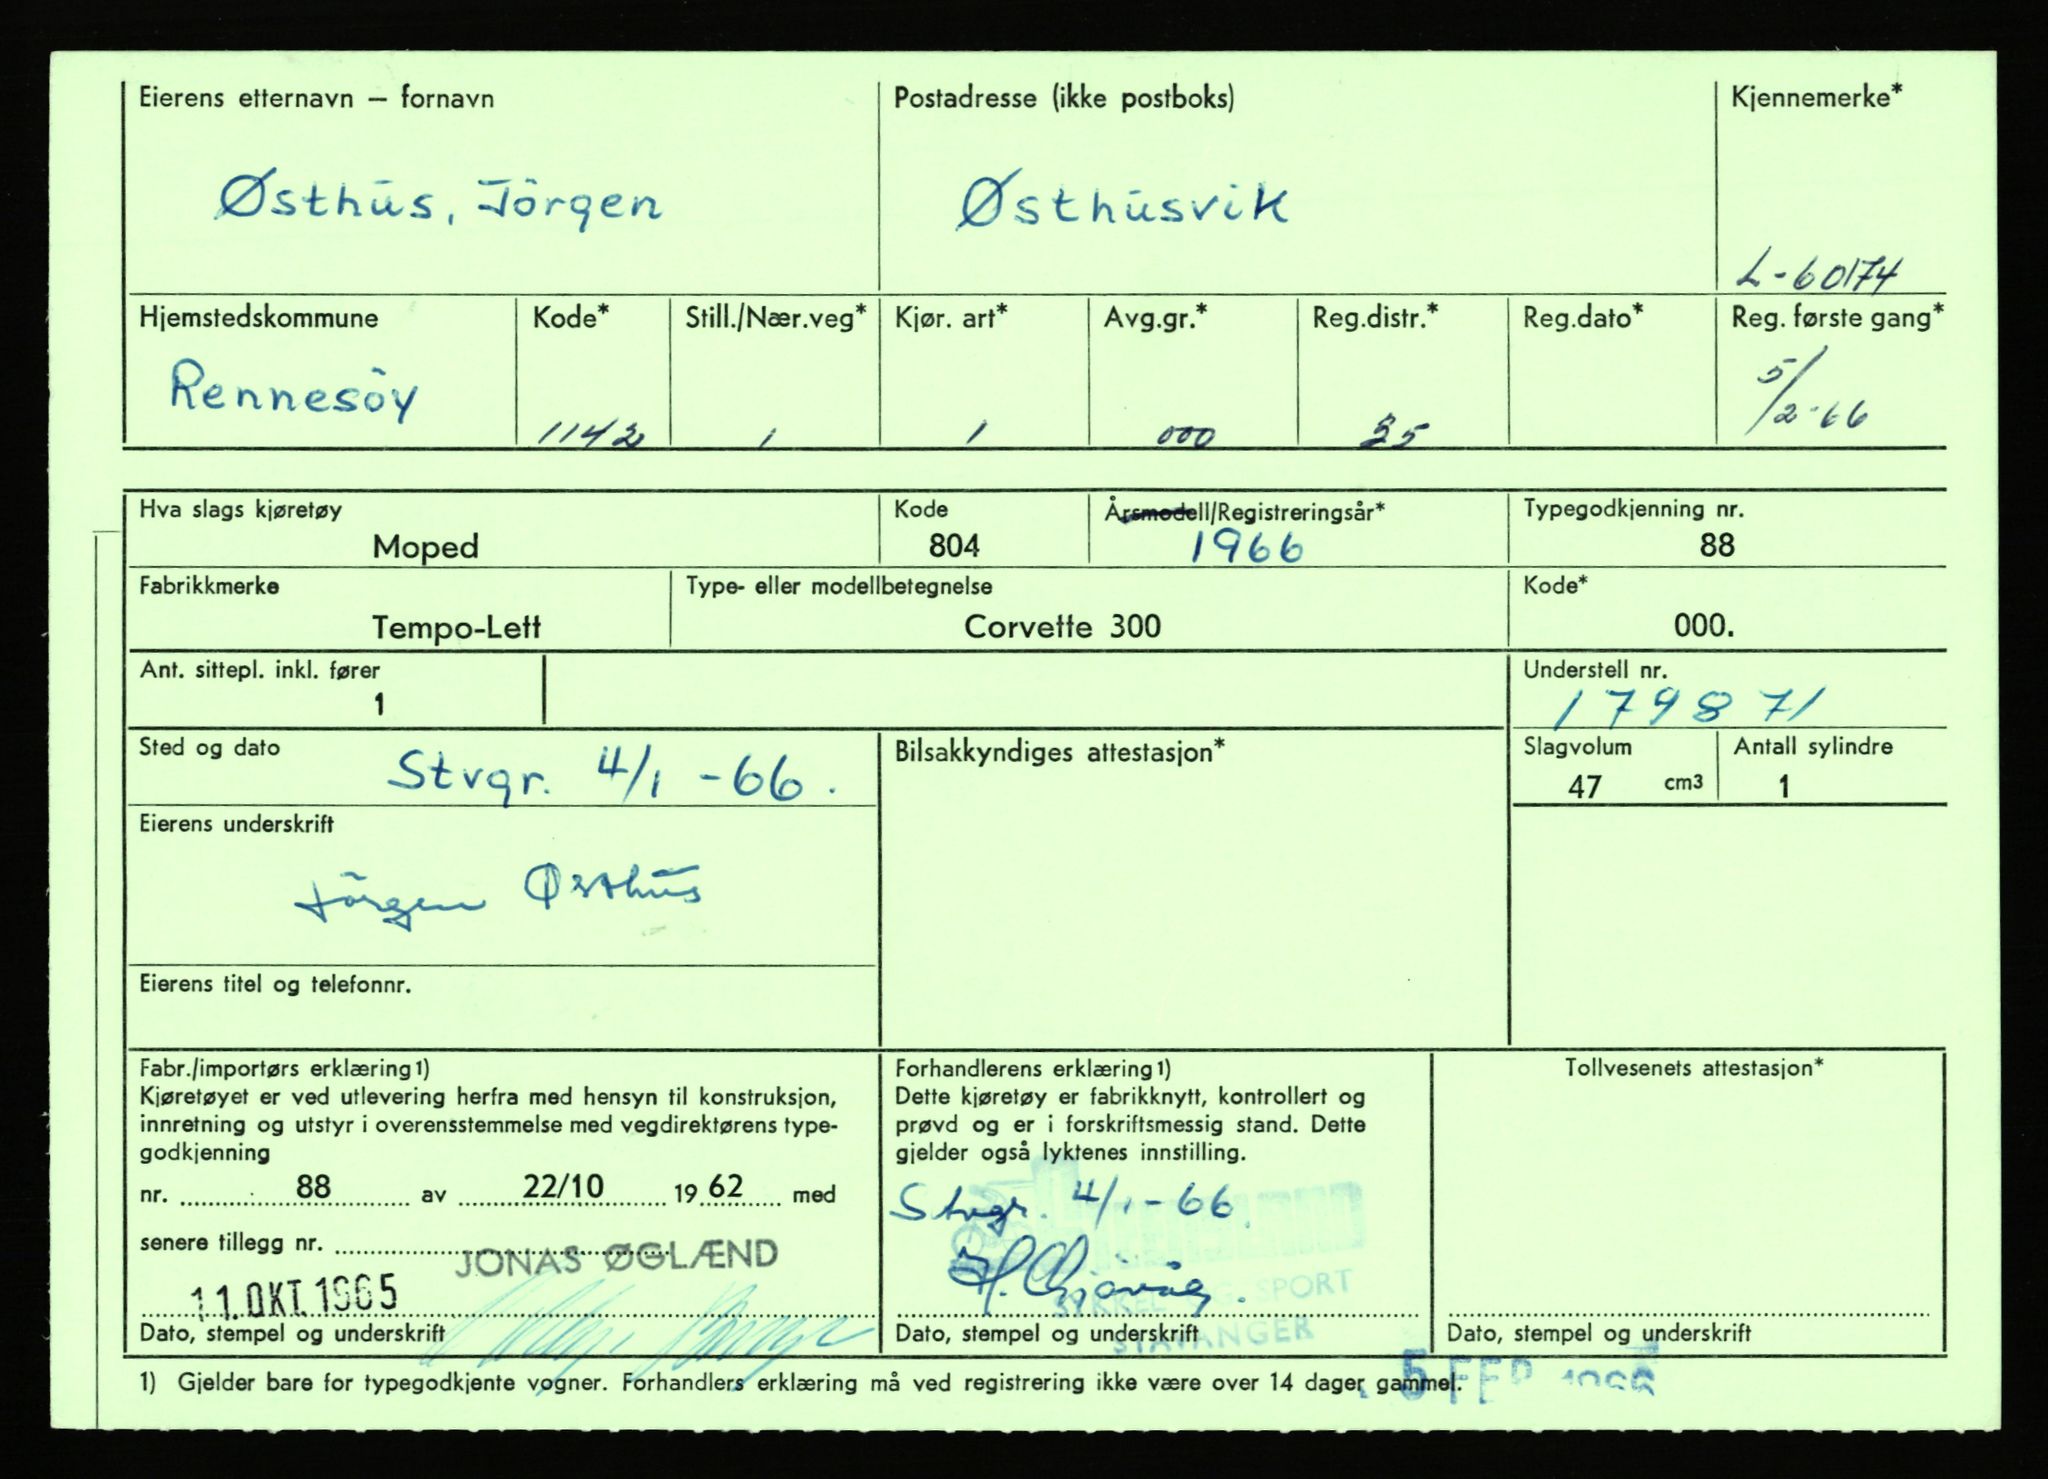 Eierens etternavn – fornavn
Postadresse (ikke postboks)
Kjennemerke*
Østhus, Jörgen
Østhusvik
L-60174
Hjemstedskommune
Kode*
Still./Nær.veg*
Kjør. art*
Avg.gr.*
Reg.distr.*
Reg.dato*
Reg. første gang*
Rennesöy
1142
1
1
000
35
5/2-66
Hva slags kjøretøy
Kode
Årsmodell/Registreringsår*
Typegodkjenning nr.
Moped
804
1966
88
Fabrikkmerke
Type- eller modellbetegnelse
Kode*
Tempo-Lett
Corvette 300
000.
Ant. sittepl. inkl. fører
1
Understell nr.
179871
Sted og dato
Stvgr. 4/1 -66.
Bilsakkyndiges attestasjon*
Slagvolum
47 cm3
Antall sylindre
1
Eierens underskrift
Jörgen Østhus
Eierens titel og telefonnr.
Fabr./importørs erklæring1)
Kjøretøyet er ved utlevering herfra med hensyn til konstruksjon,
innretning og utstyr i overensstemmelse med vegdirektørens type-
godkjenning
nr. 88 av 22/10 1962 med
senere tillegg nr.
JONAS ØGLÆND
11.OKT.1965
Dato, stempel og underskrift
Forhandlerens erklæring1)
Dette kjøretøy er fabrikknytt, kontrollert og
prøvd og er i forskriftsmessig stand. Dette
gjelder også lyktenes innstilling.
Stvgr. 4/1-66.
SYKKEL OG SPORT
STAVANGER
Dato, stempel og underskrift
Tollvesenets attestasjon*
Dato, stempel og underskrift
1) Gjelder bare for typegodkjente vogner. Forhandlers erklæring må ved registrering ikke være over 14 dager gammel.
5 FEB 1966